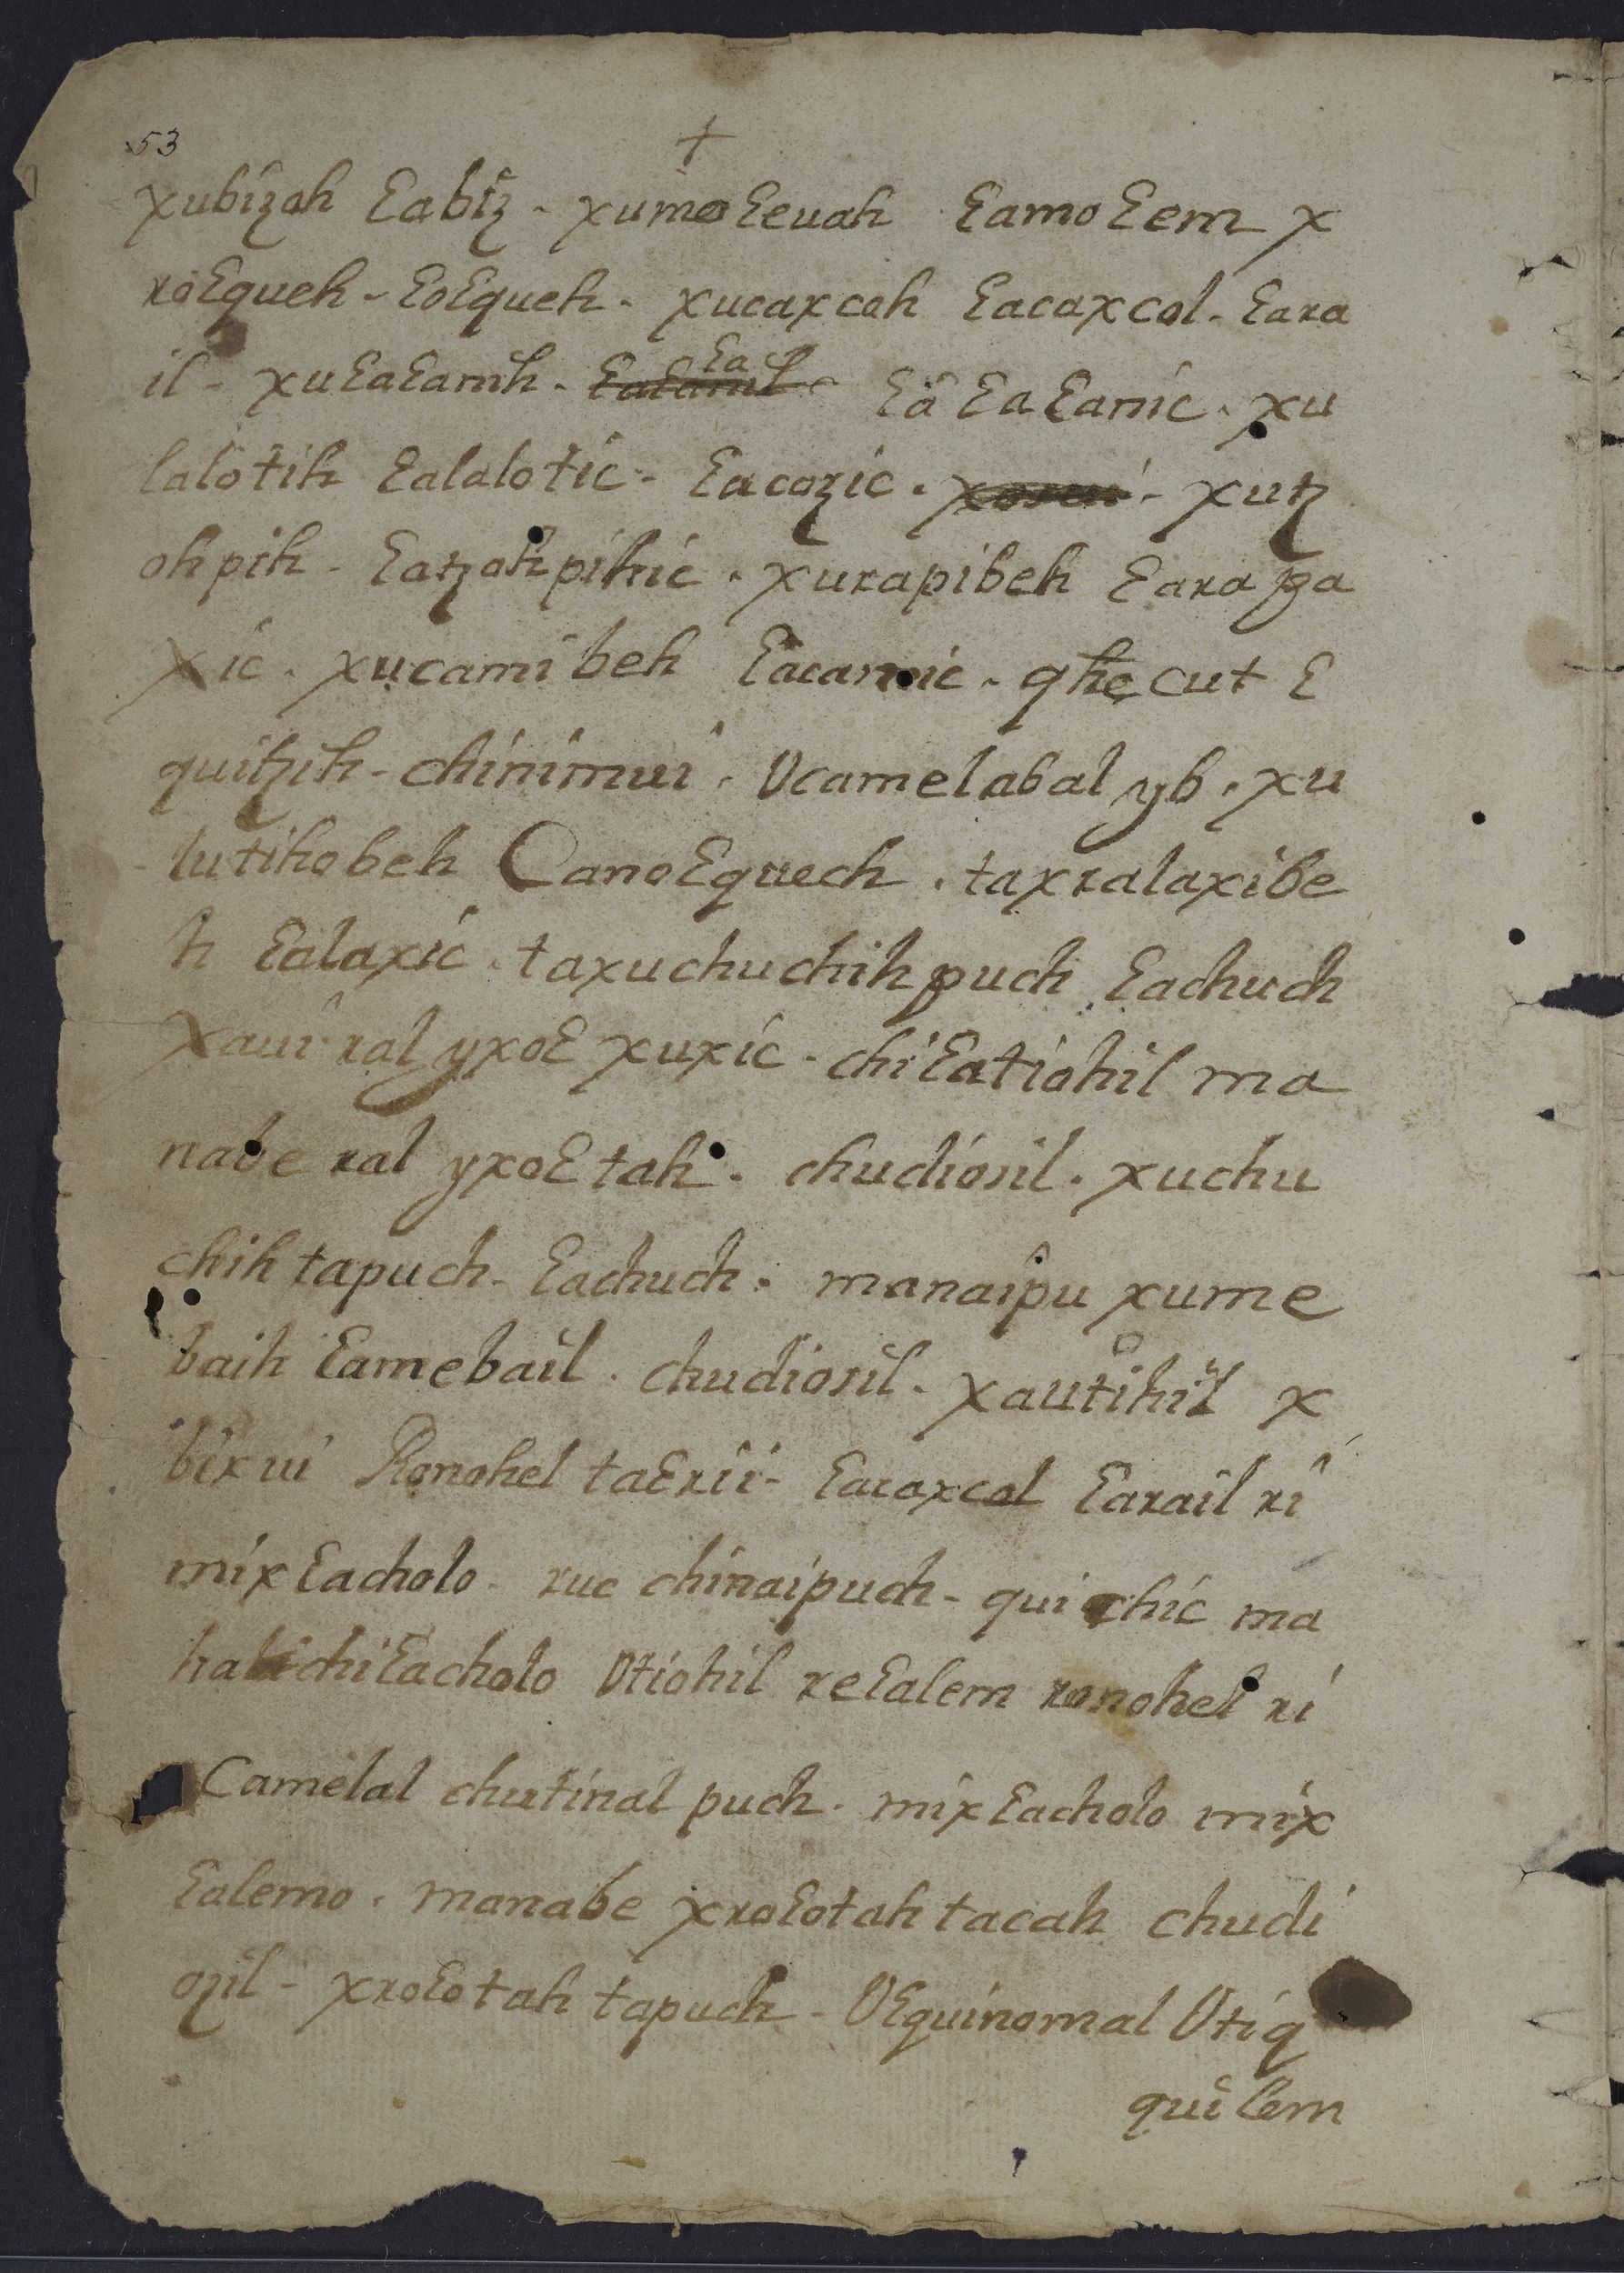 53
+
xubizah Ɛabiz - xumoƐeuah Ɛamo Ɛem x
roƐqueh - ƐoƐqueh - xucaxcah Ɛacaxcol - Ɛara
il - xuƐaƐamih - Ɛa ƐaƐanic . xu
lalotih Ɛalalotic - Ɛacozic . xutz
ohpih - Ɛatzohpihic . xurapibeh Ɛara pa
xic . xucami beh Ɛacamic . qhe cut Ɛ
quitzih - chinimui . Vcamelabal yb . xu
lutihobeh CanoƐquech . taxralaxibe
h Ɛalaxic . taxuchuchih puch Ɛachuch
xaui ral yxoƐ xuxic - chiƐatiohil ma
nabe ral yxoƐ tah . chudiosil . xuchu
chih tapuch - Ɛachuch . manaipu xume
baih Ɛamebail . chudiosil . xautihil x
bixui Ronohel taƐrii - Ɛacaxcol Ɛarail ri
mixƐacholo . ruc chinaipuch - qui chic ma
habi chiƐacholo Vtiohil reƐalem ronohel ri
Camelal chutinal puch . mixƐacholo mix
Ɛalemo . manabe xroƐotah tacah chudi
ozil - xroƐotah tapuch - VƐquinomal Vtiq
quilem